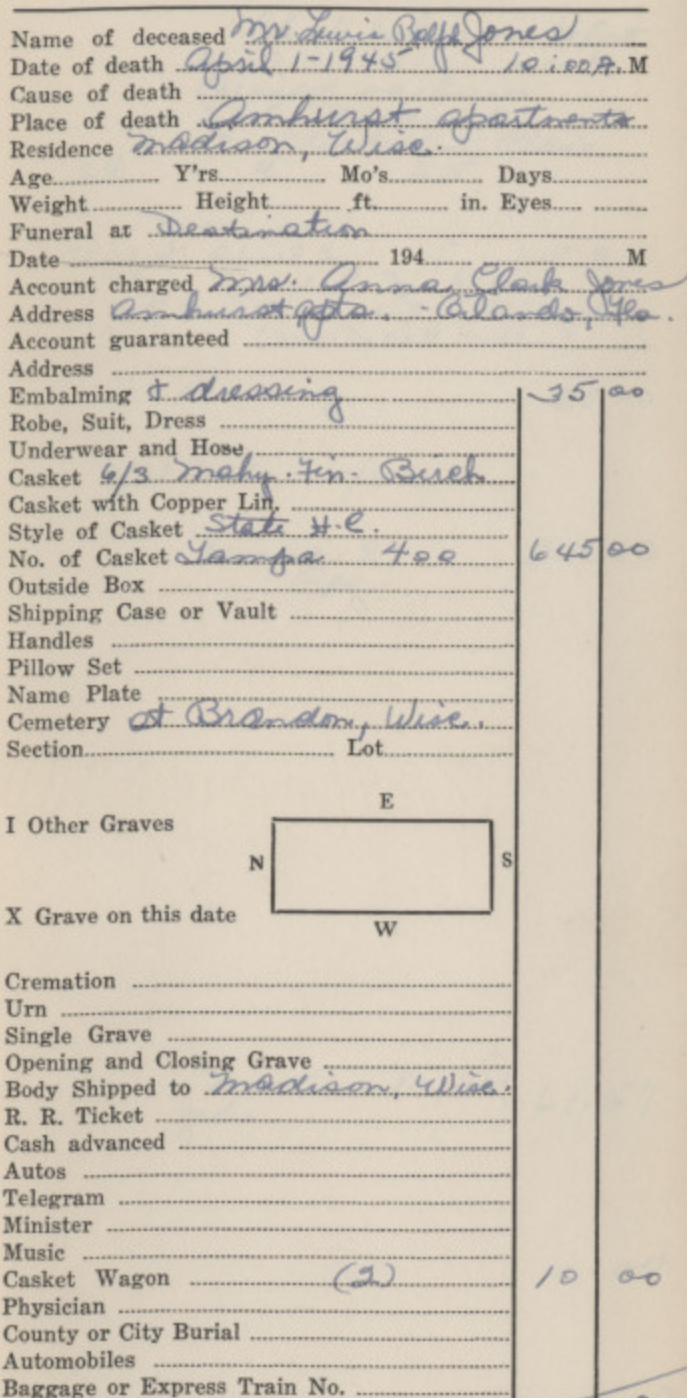 Name of deceased Mr. Lewis Rolfe Jones
Date of death April 1-1945 10:00 A. M
Cause of death
Place of death Amhurst apartments
Residence Madison, Wisc.
Age Y'rs Mo's Days
Weight Height ft. in. Eyes
Funeral at Destination
Date 194 M
Account charged Mrs. Anna Clark Jones
Address Amhurst Apts. - Orlando, Fla.
Account guaranteed
Address
Embalming & dressing 35 00
Robe, Suit, Dress
Underwear and Hose
Casket 6/3 Mahy. Fin. Birch
Casket with Copper Lin.
Style of Casket State H.C.
No. of Casket Tampa 400 645 00
Outside Box
Shipping Case or Vault
Handles
Pillow Set
Name Plate
Cemetery at Brandon, Wisc.
Section Lot
E
I Other Graves
N S
X Grave on this date
W
Cremation
Urn
Single Grave
Opening and Closing Grave
Body Shipped to Madison, Wisc.
R. R. Ticket
Cash advanced
Autos
Telegram
Minister
Music
Casket Wagon (2) 10 00
Physician
County or City Burial
Automobiles
Baggage or Express Train No.